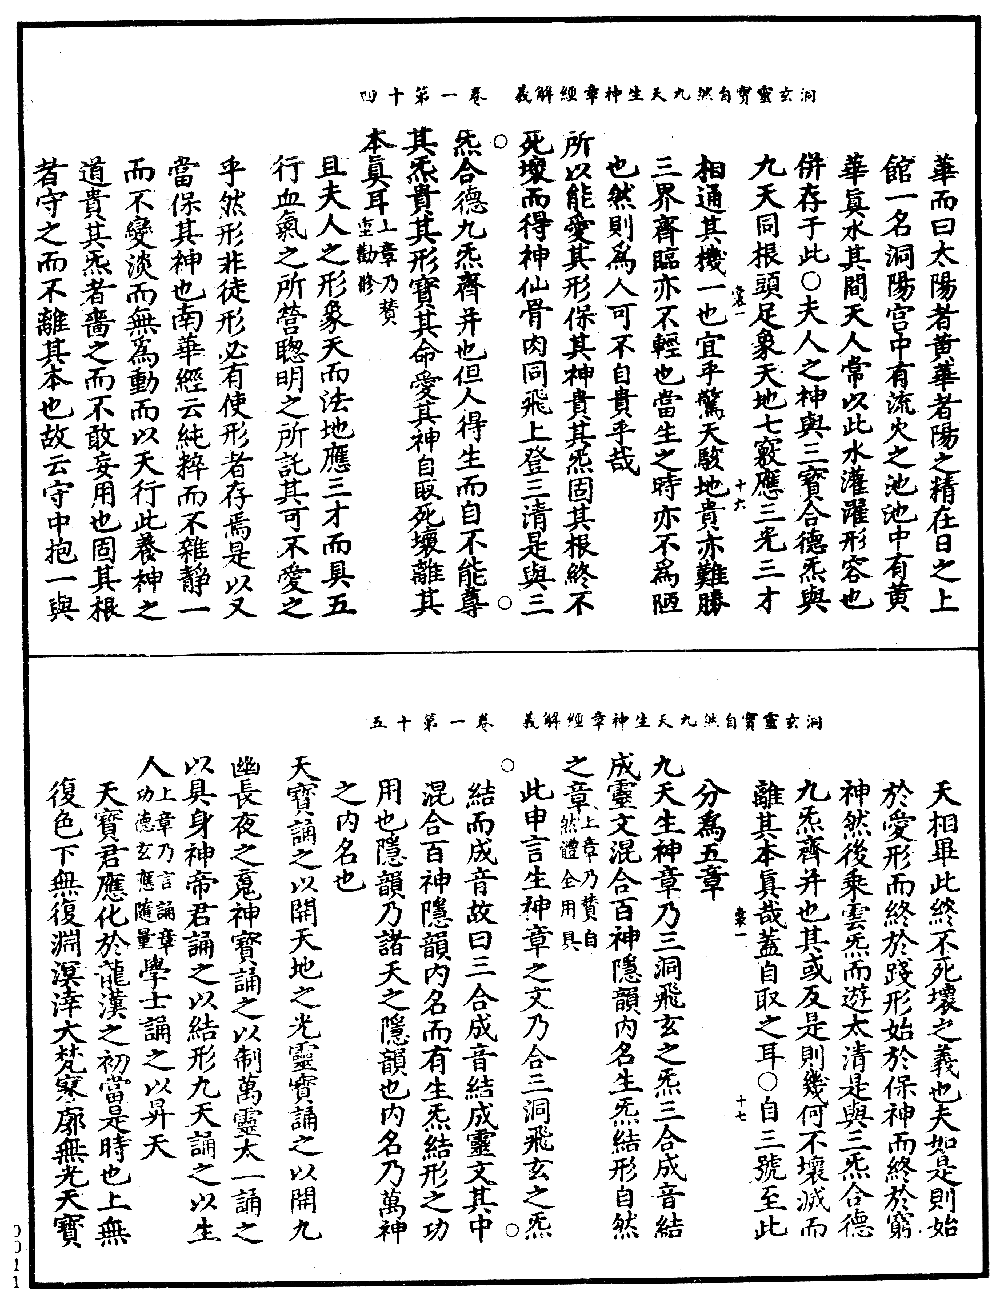 洞玄靈寶自然九天生神章經解義　卷一第十四
華而曰太陽者黃華者陽之精在日之上
館一名洞陽宫中有流火之池池中有黄
華真水其間天人常以此水灌躍形容也
併存于此○夫人之神與三寶合德炁與
九天同根頭足象天地七竅應三光三才
裳一　十六
相通其機一也宜乎驚天駭地貴亦難勝
三界齊臨亦不輕也當生之時亦不爲陋
也然則爲人可不自貴乎哉
所以能愛其形保其神貴其炁固其根終不
死壞而得神仙骨肉同飛上登三清是與三
炁合德九炁齊并也但人得生而自不能尊
其炁貴其形寶其命愛其神自取死壞離其
本真耳上章乃贊並勸修
且夫人之形象天而法地應三才而具五
行血氣之所營聰明之所託其可不愛之
乎然形非徒形必有使形者存焉是以又
當保其神也南華經云純粹而不雜静一
而不變淡而無爲動而以天行此養神之
道貴其炁者嗇之而不敢妄用也固其根
者守之而不離其本也故云守中抱一與
洞玄靈寶自然九天生神章經解義　卷一第十五
天相畢此終不死壞之義也夫如是則始
於愛形而終於踐形始於保神而終於窮
神然後乘雲炁而遊太清是與三炁合德
九炁齊并也其或反是則幾何不壞滅而
離其本真哉蓋自取之耳○自三號至此
裳一　十七
分爲五章
九天生神章乃三洞飛玄之炁三合成音結
成靈文混合百神隱韻内名生炁結形自然
之章上章乃贊自然體全用具
此申言生神章之文乃合三洞飛玄之炁
結而成音故曰三合成音結成靈文其中
混合百神隱韻内名而有生炁結形之功
用也隱韻乃諸天之隱韻也内名乃萬神
之内名也
天寶誦之以開天地之光靈寶誦之以開九
幽長夜之䰟神寶誦之以制萬靈太一誦之
以具身神帝君誦之以結形九天誦之以生
人上章乃言誦章功德玄應隨量學士誦之以昇天
天寶君應化於龍漢之初當是時也上無
復色下無復淵溟涬大梵寥廓無光天寶
0021